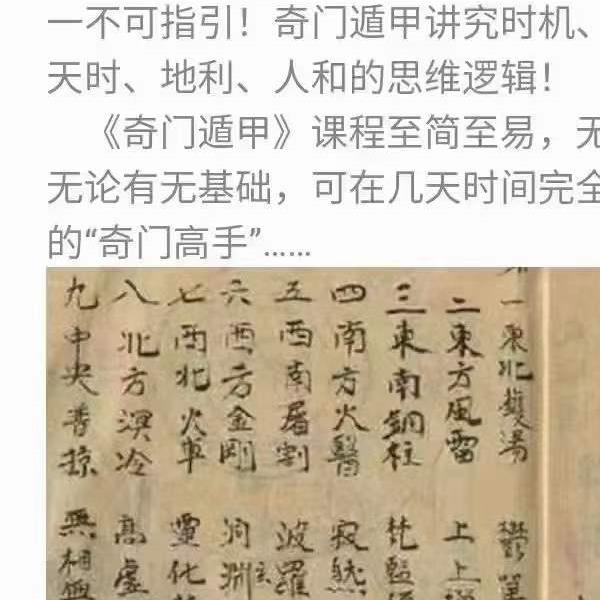 一不可指引！奇门遁甲讲究时机、
天时、地利、人和的思维逻辑！
《奇门遁甲》课程至简至易，无
无论有无基础，可在几天时间完全
的“奇门高手”……
一東北鑊湯
二東方風雷 上上
三東南銅柱 梵監
四南方火醫 寂然
五西南屠割 波羅
六西方金剛 洞淵
七西北火車 靈化
八北方溟冷 高虛
九中央普掠 無相無